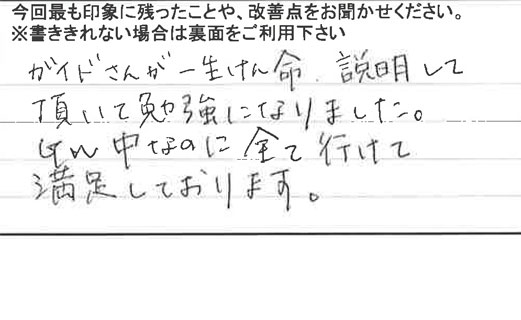 今回最も印象に残ったことや、改善点をお聞かせください。
※書ききれない場合は裏面をご利用下さい
ガイドさんが一生けん命、説明して
頂いて勉強になりました。
中なのに全て行けて
満足しております。